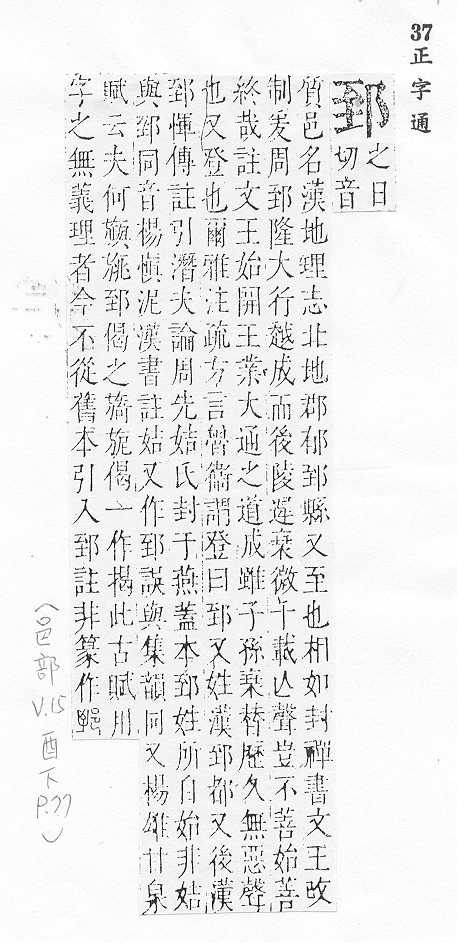 37正字通
郅
之日
切音
質邑名漢地理志北地郡郁郅縣又至也相如封禪書文王改
制爰周郅隆大行越成而後陵遲衰微千載亾聲豈不善始善
終哉註文王始開王業大通之道成雖子孫衰替歷久無惡聲
也又登也爾雅注疏方言魯衞謂登曰郅又姓漢郅都又後漢
郅惲傳註引潛夫論周先姞氏封于燕蓋本郅姓所自始非姞
與郅同音楊愼泥漢書註姞又作郅誤與集韻同又楊雄甘泉
賦云夫何旟旐郅偈之旖旎偈一作揭此古賦用
字之無義理者今不從舊本引入郅註非篆作
（邑部
V.15
酉下
P.77）